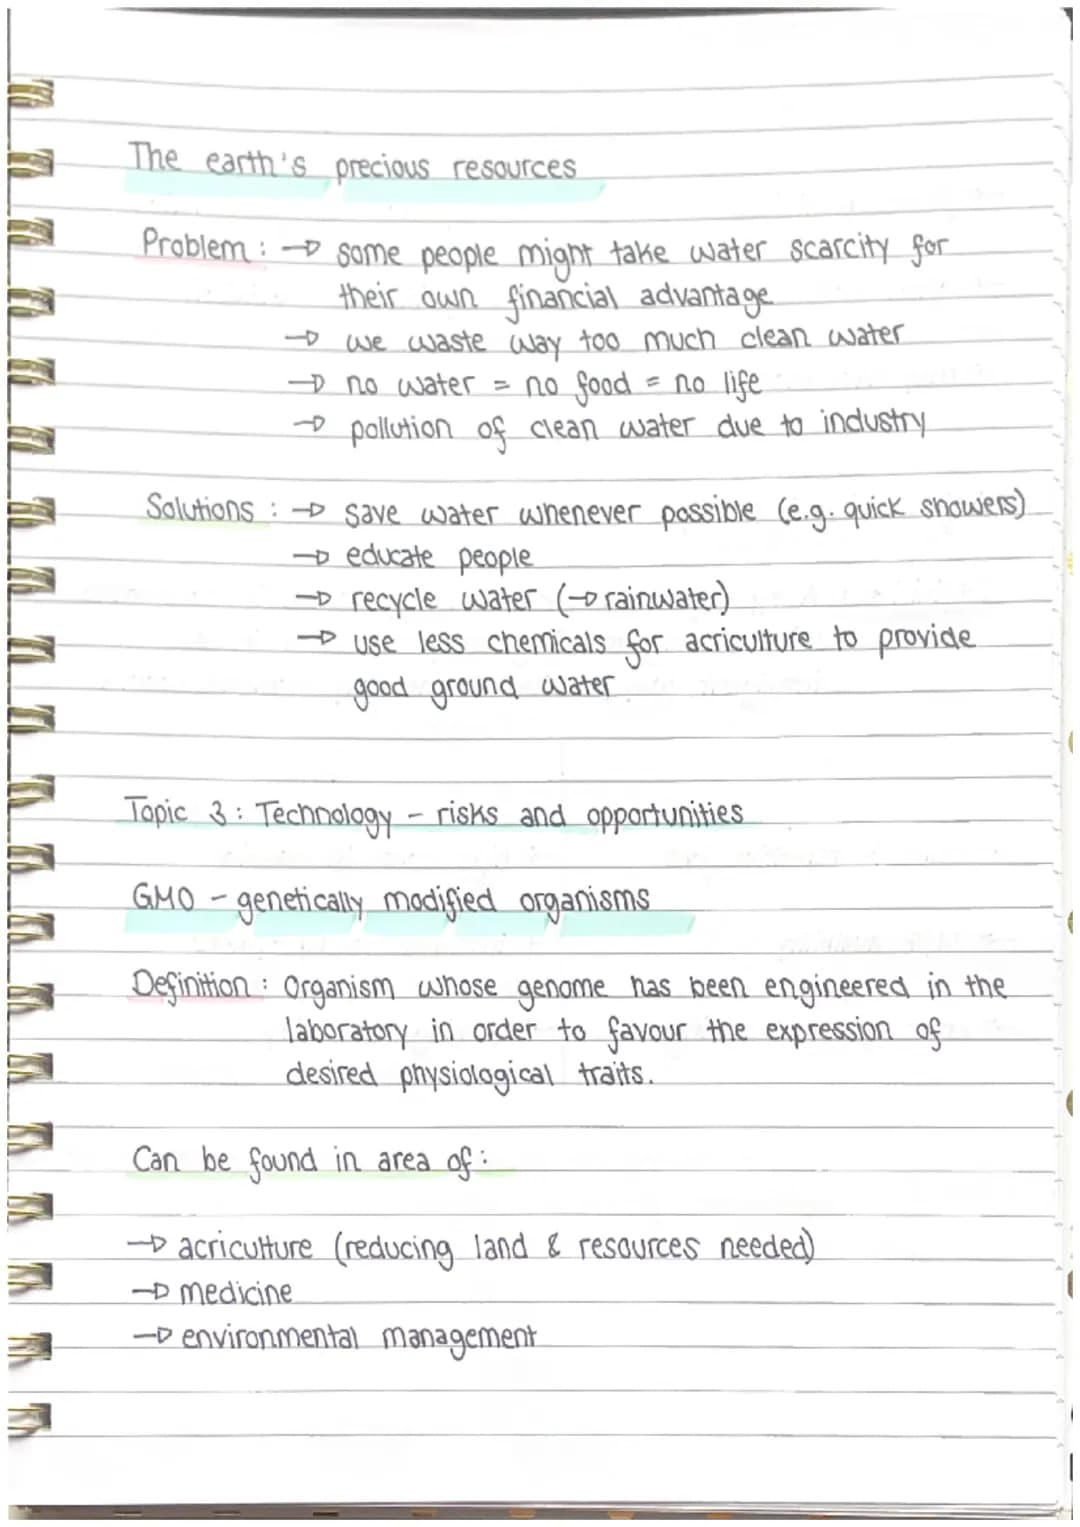 The earth's precious resources
Problem : → some people might take water scarcity for
their own financial advantage
→ we waste way too much clean water
→ no water = no food = no life
→ pollution of clean water due to industry
Solutions : → save water whenever possible (e.g. quick showers)
→ educate people
→ recycle water (→ rainwater)
→ use less chemicals for acriculture to provide
good ground water
Topic 3 : Technology - risks and opportunities
GMO - genetically modified organisms
Definition : Organism whose genome has been engineered in the
laboratory in order to favour the expression of
desired physiological traits.
Can be found in area of :
→ acriculture (reducing land & resources needed)
→ medicine
→ environmental management